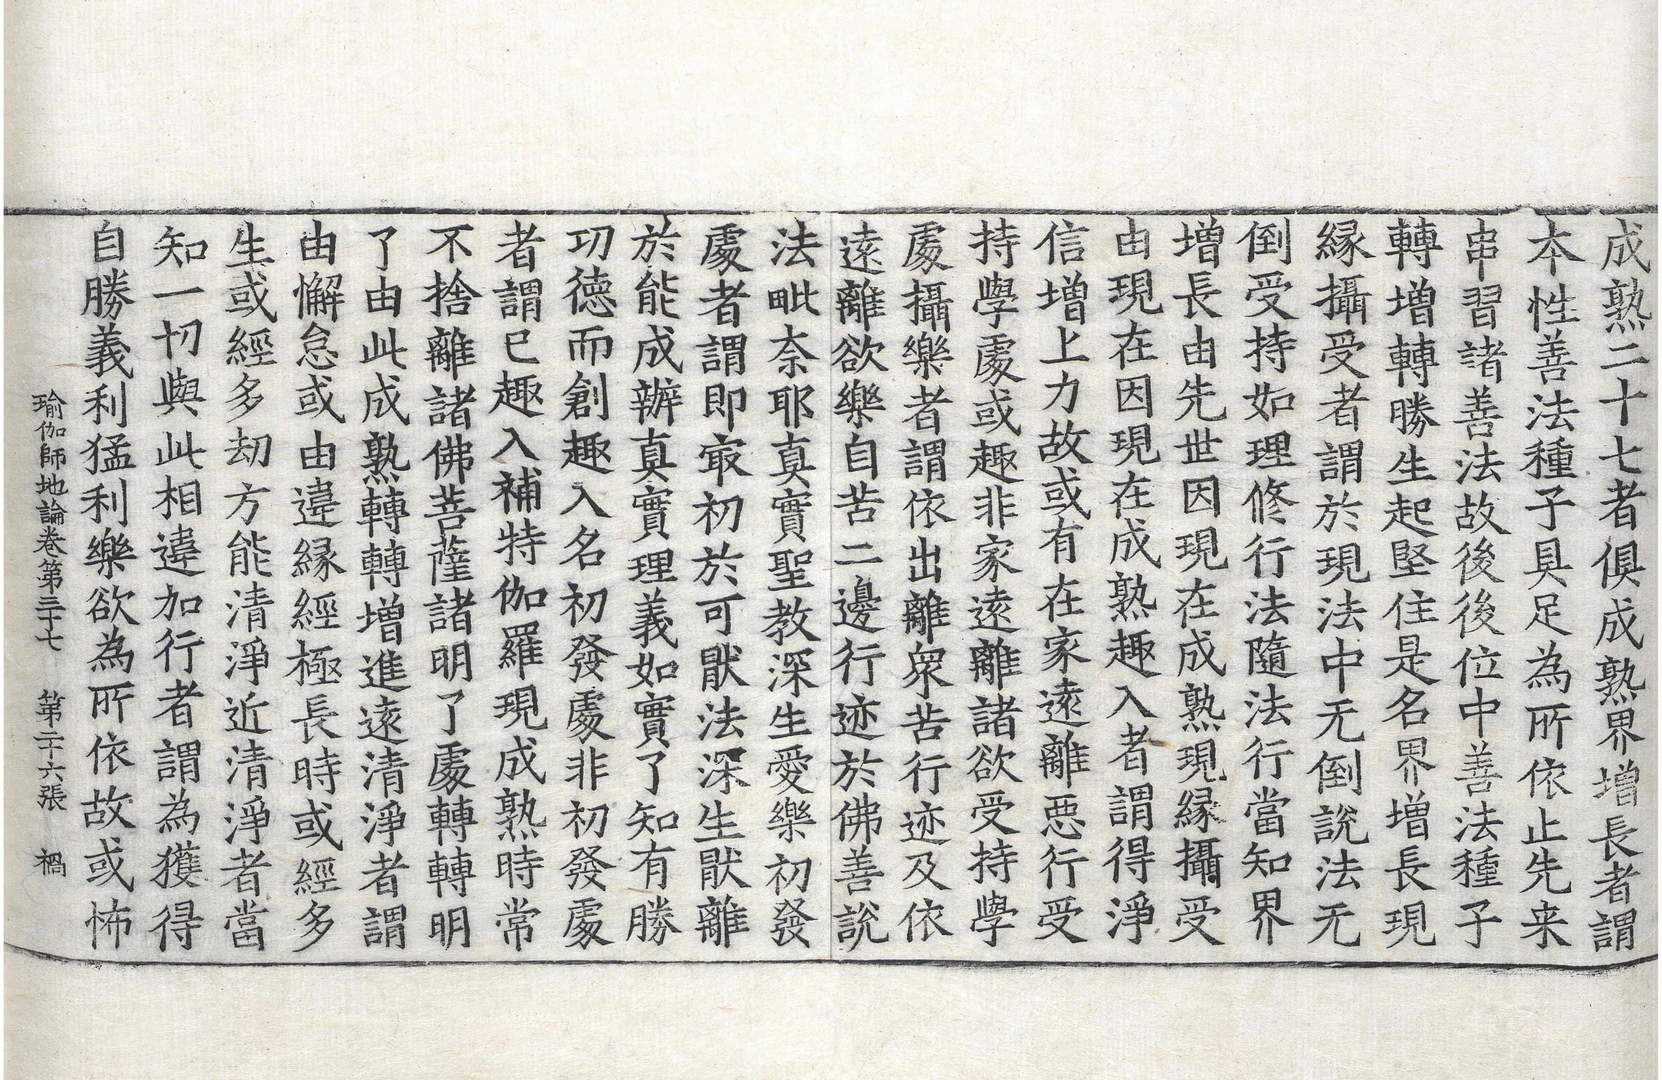 成熟二十七者俱成熟界增長者謂
本性善法種子具足為所依止先来
串習諸善法故後後位中善法種子
轉增轉勝生起堅住是名界增長現
緣攝受者謂於現法中无倒說法无
倒受持如理修行法隨法行當知界
增長由先世因現在成熟現緣攝受
由現在因現在成熟趣入者謂得淨
信增上力故或有在家遠離惡行受
持學處或趣非家遠離諸欲受持學
處攝樂者謂依出離衆苦行迹及依
遠離欲樂自苦二邊行迹於佛善說
法毗奈耶真實聖教深生愛樂初發
處者謂即㝡初於可厭法深生厭離
於能成辦真實理義如實了知有勝
功德而創趣入名初發處非初發處
者謂已趣入補特伽羅現成熟時常
不捨離諸佛菩薩諸明了處轉轉明
了由此成熟轉轉增進遠清淨者謂
由懈怠或由違緣經極長時或經多
生或經多劫方能清淨近清淨者當
知一切與此相違加行者謂為獲得
自勝義利猛利樂欲為所依故或怖
瑜伽師地論卷第三十七 第二十六張 禍